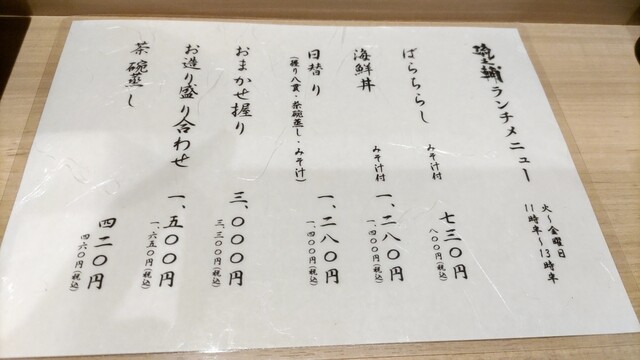 ランチメニュー
火〜金曜日
11時半〜13時半
ばらちらし みそ汁付 七三〇円
八〇〇円(税込)
海鮮丼 みそ汁付 一、二八〇円
一、四〇〇円(税込)
日替り 一、二八〇円
(握り八貫・茶碗蒸し・みそ汁) 一、四〇〇円(税込)
おまかせ握り 三、〇〇〇円
三、三〇〇円(税込)
お造り盛り合わせ 一、五〇〇円
一、六五〇円(税込)
茶碗蒸し 四二〇円
四六〇円(税込)